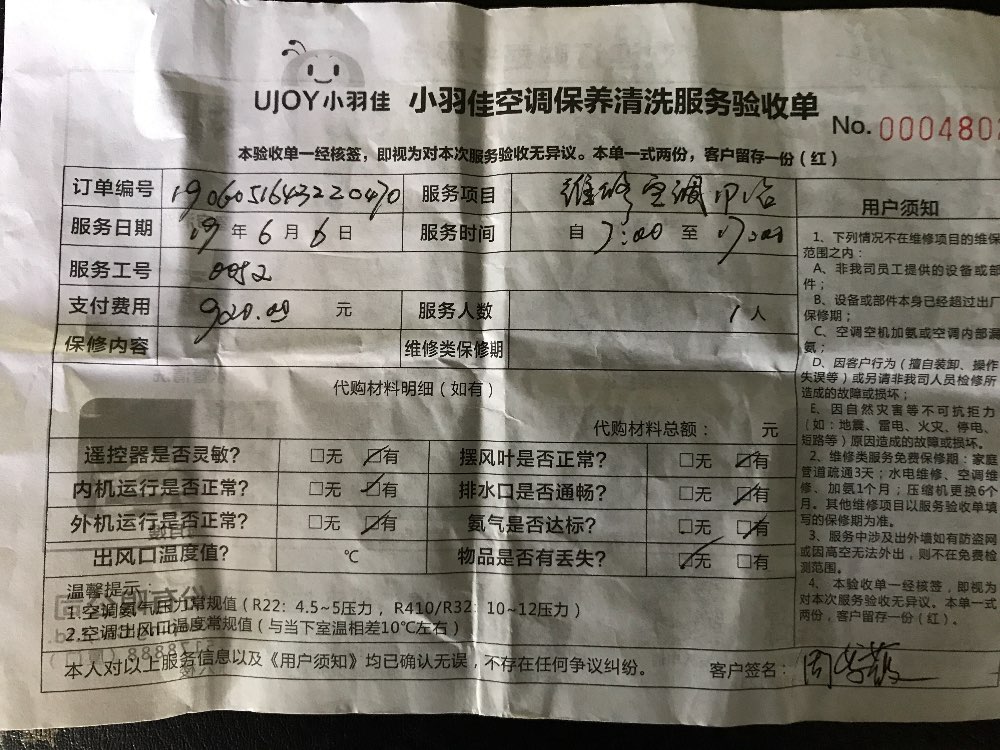 UJOY小羽佳 小羽佳空调保养清洗服务验收单
No. 000480
本验收单一经核签，即视为对本次服务验收无异议。本单一式两份，客户留存一份（红）
订单编号 1906051643220470 服务项目 维修空调
服务日期 19年6月6日 服务时间 自 7:00 至 17:00
服务工号 0052
支付费用 920.00 元 服务人数 1人
保修内容 维修类保修期
代购材料明细（如有）
代购材料总额： 元
遥控器是否灵敏? □无 □有 摆风叶是否正常? □无 □有
内机运行是否正常? □无 □有 排水口是否通畅? □无 □有
外机运行是否正常? □无 □有 氨气是否达标? □无 □有
出风口温度值? ℃ 物品是否有丢失? □无 □有
温馨提示：
1.空调氨气压力常规值（R22: 4.5~5压力，R410/R32: 10~12压力）
2.空调出风口温度常规值（与当下室温相差10℃左右）
本人对以上服务信息以及《用户须知》均已确认无误，不存在任何争议纠纷。 客户签名：
用户须知
1、下列情况不在维修项目的维保
范围之内：
A、非我司员工提供的设备或部
件；
B、设备或部件本身已经超过出厂
保修期；
C、空调空机加氨或空调内部漏
氨；
D、因客户行为（擅自装卸、操作
失误等）或另请非我司人员检修所
造成的故障或损坏；
E、因自然灾害等不可抗拒力
（如：地震、雷电、火灾、停电、
短路等）原因造成的故障或损坏。
2、维修类服务免费保修期：家庭
管道疏通3天；水电维修、空调维
修、加氨1个月；压缩机更换6个
月。其他维修项目以服务验收单填
写的保修期为准。
3、服务中涉及出外墙如有防盗网
或因高空无法外出，则不在免费检
测范围。
4、本验收单一经核签，即视为
对本次服务验收无异议。本单一式
两份，客户留存一份（红）。